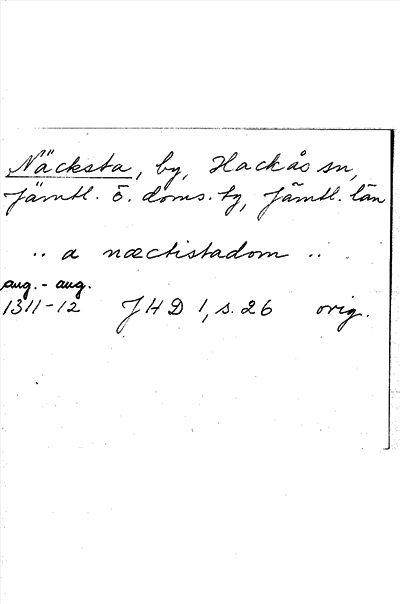 Näcksta, by, Hackås sn,
Jämtl. ö. doms. tg, Jämtl. län
.. a næctistadom ..
aug. - aug.
1311-12 JHD 1, s. 26 orig.